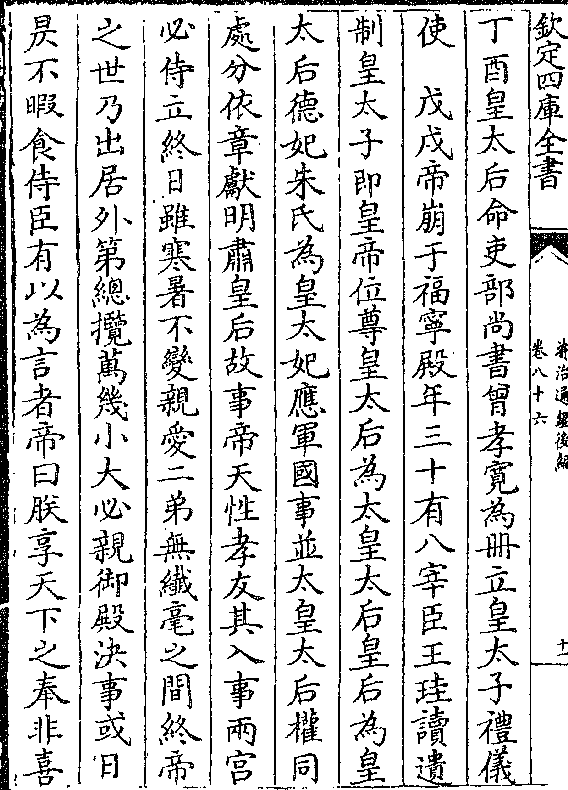 欽定四庫全書
資治通鑑後編
卷八十六
十一
丁酉皇太后命吏部尚書曾孝寛為冊立皇太子禮儀
使　戊戌帝崩于福寧殿年三十有八宰臣王珪讀遺
制皇太子即皇帝位尊皇太后為太皇太后皇后為皇
太后德妃朱氏為皇太妃應軍國事並太皇太后權同
處分依章獻明肅皇后故事帝天性孝友其入事兩宮
必侍立終日雖寒暑不變親愛二弟無纎毫之間終帝
之世乃出居外第總攬萬幾小大必親御殿決事或日
昃不暇食侍臣有以為言者帝曰朕享天下之奉非喜